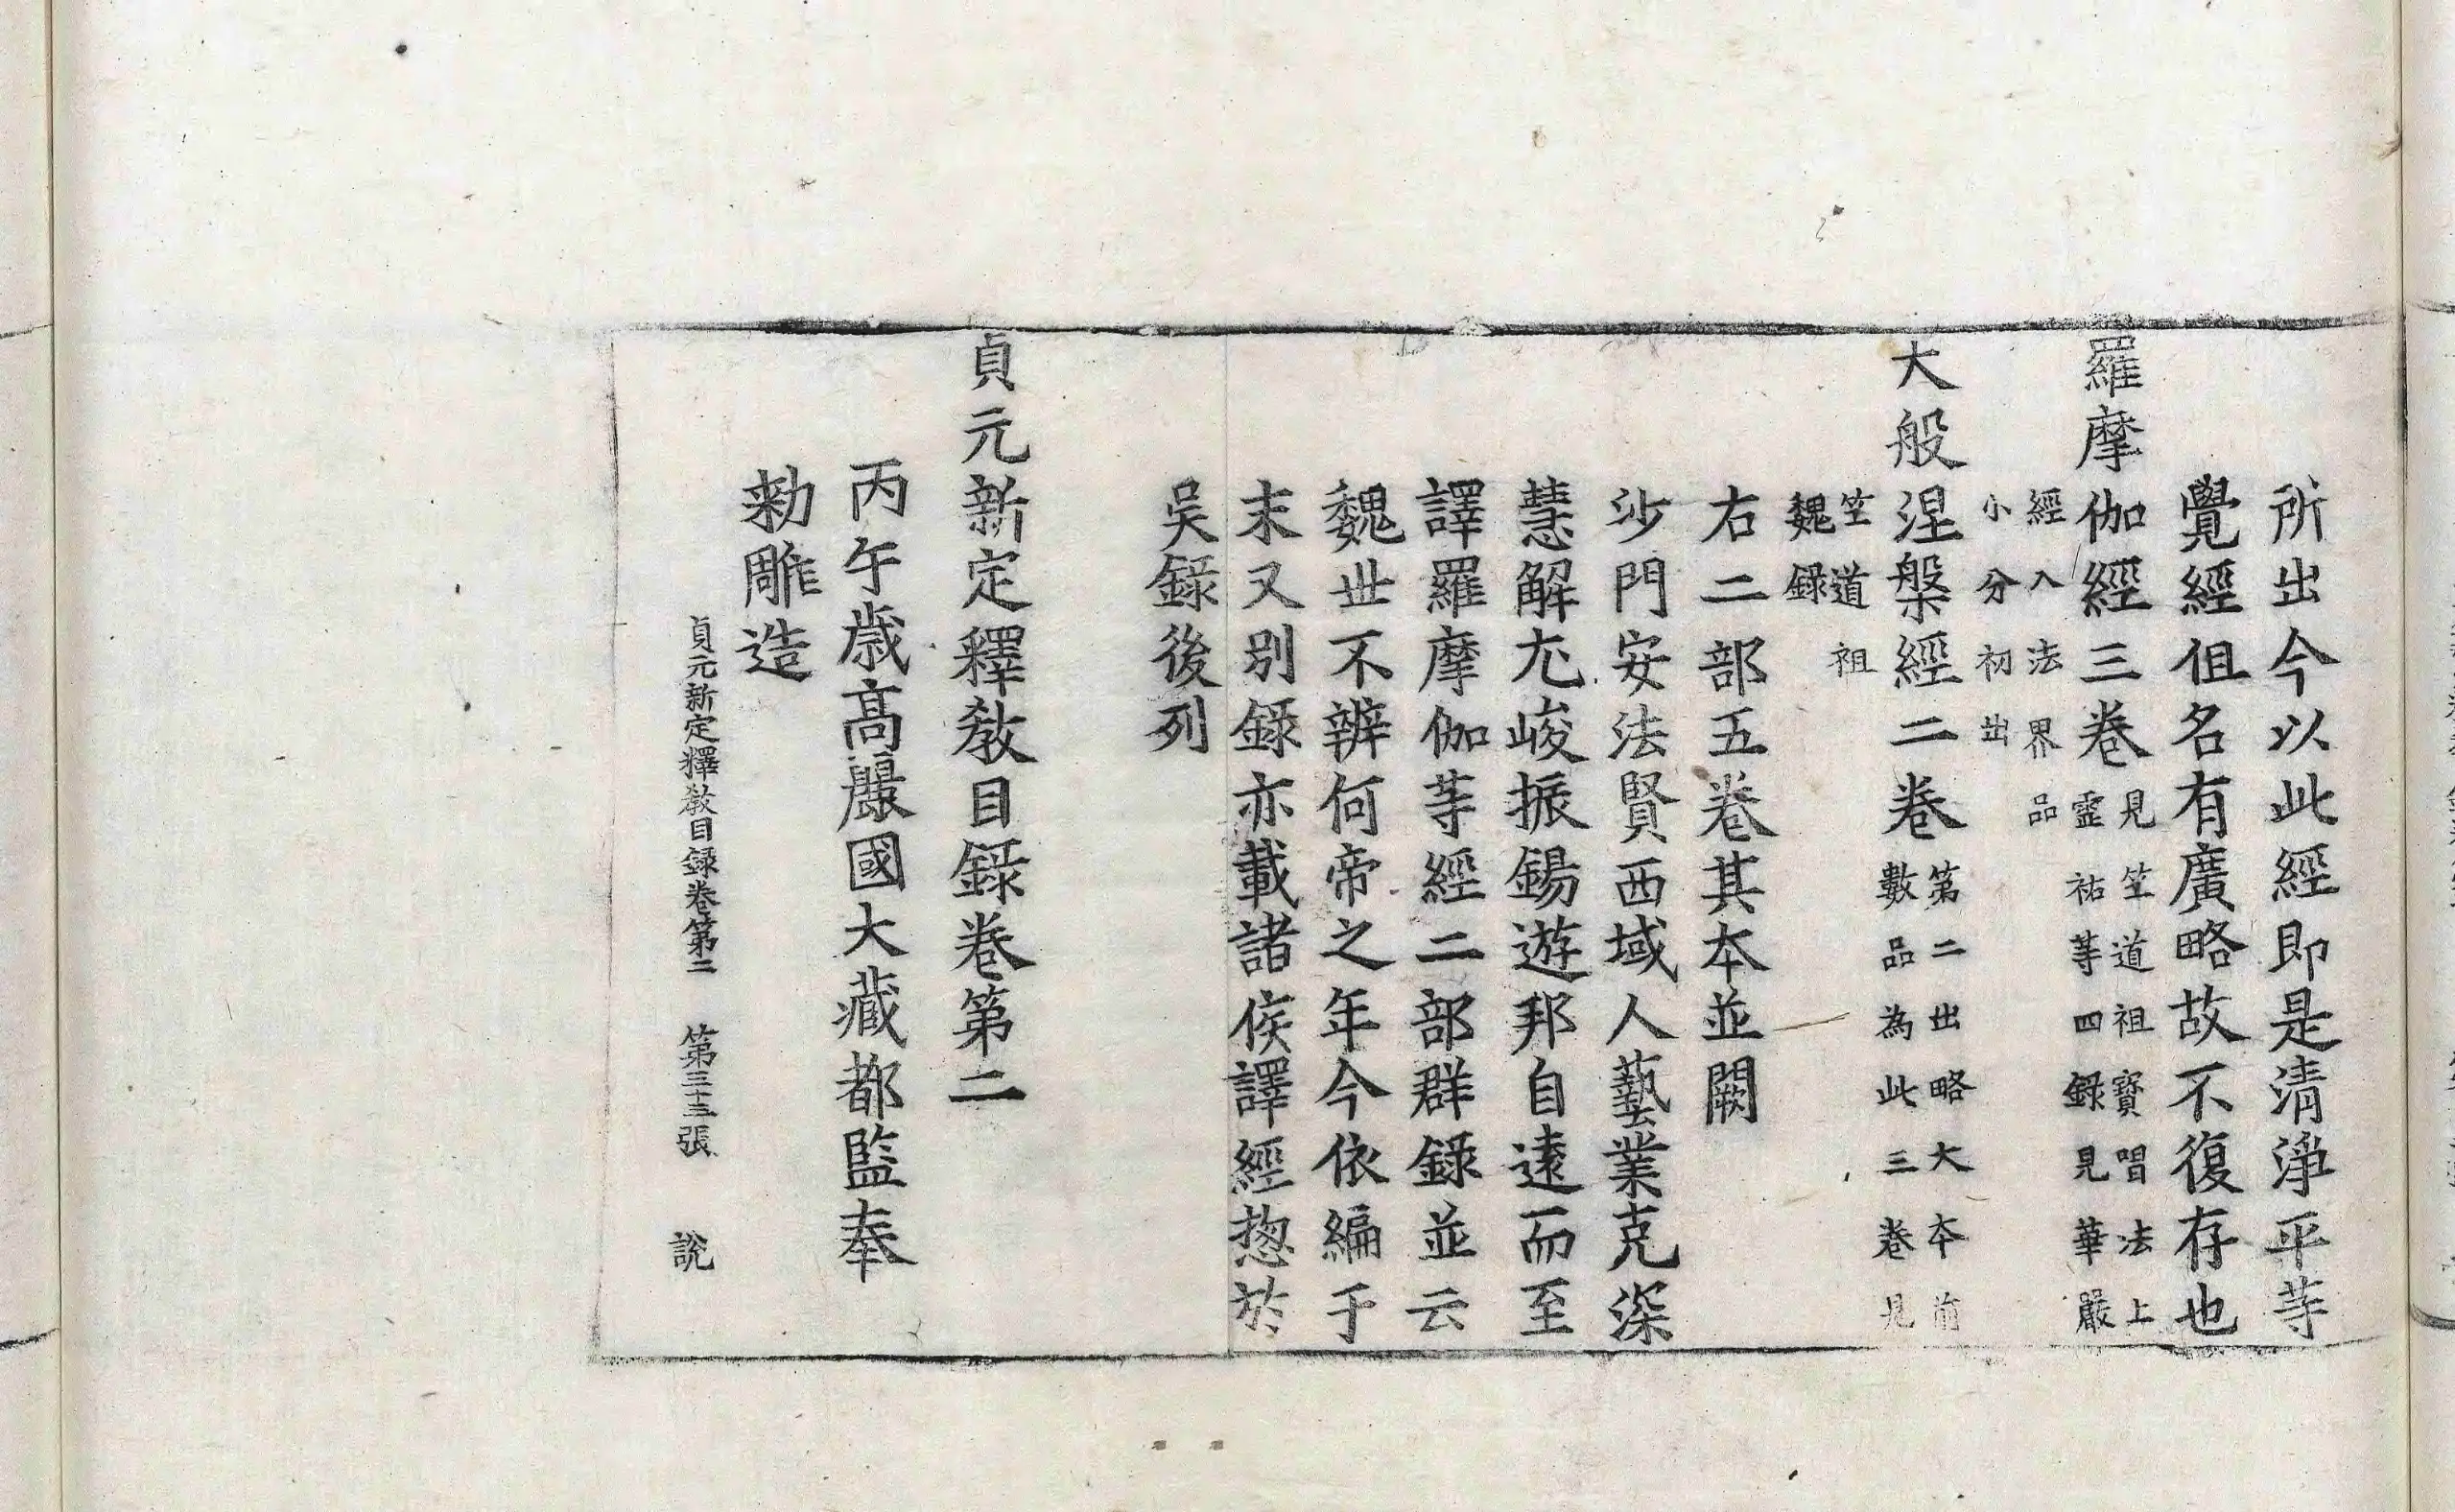 所出今以此經即是清淨平等
覺經但名有廣略故不復存也
羅摩伽經三卷見竺道祖寶唱法上靈祐等四錄見華嚴
經入法界品小分初出
大般涅槃經二卷第二出略大本前數品為此三卷見
竺道祖魏錄
右二部五卷其本並闕
沙門安法賢西域人藝業克深
慧解尤峻振錫遊邦自遠而至
譯羅摩伽等經二部群錄並云
魏世不辨何帝之年今依編于
末又別錄亦載諸侯譯經惣於
吳錄後列
貞元新定釋教目錄卷第二
丙午歲高麗國大藏都監奉
勅雕造
貞元新定釋教目錄卷第二 第三十三張 說